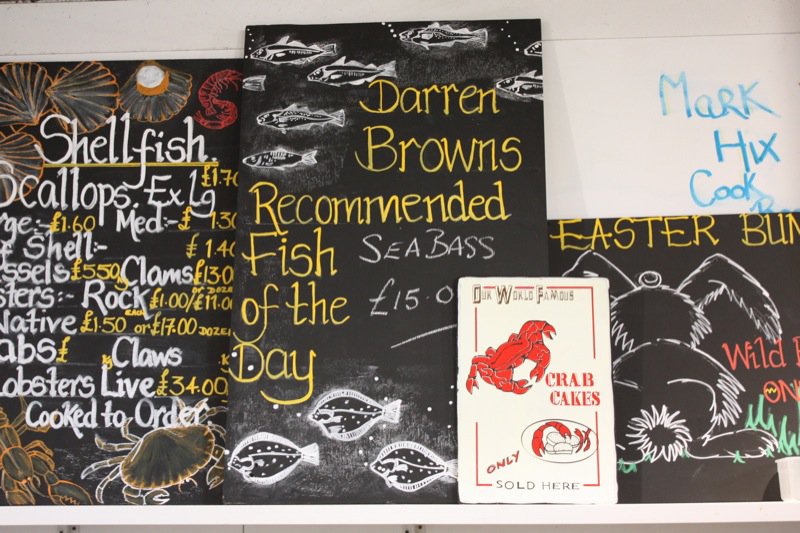 Shellfish.
Scallops. Ex Lg £1.70
£1.60 Med:- £1.30
Shell:- £1.40
£5.50 KG Clams £13.0
Rock £1.00/£11.00
EACH OR DOZEN
Native £1.50 or £17.00 DOZE
£ KG Claws
Lobsters Live £34.00
Cooked to Order
Darren
Browns
Recommended
Fish
of the
Day
SEA BASS
£15.0
OUR WORLD FAMOUS
CRAB
CAKES
ONLY
SOLD HERE
Mark
Hix
Cook
EASTER BUN
Wild